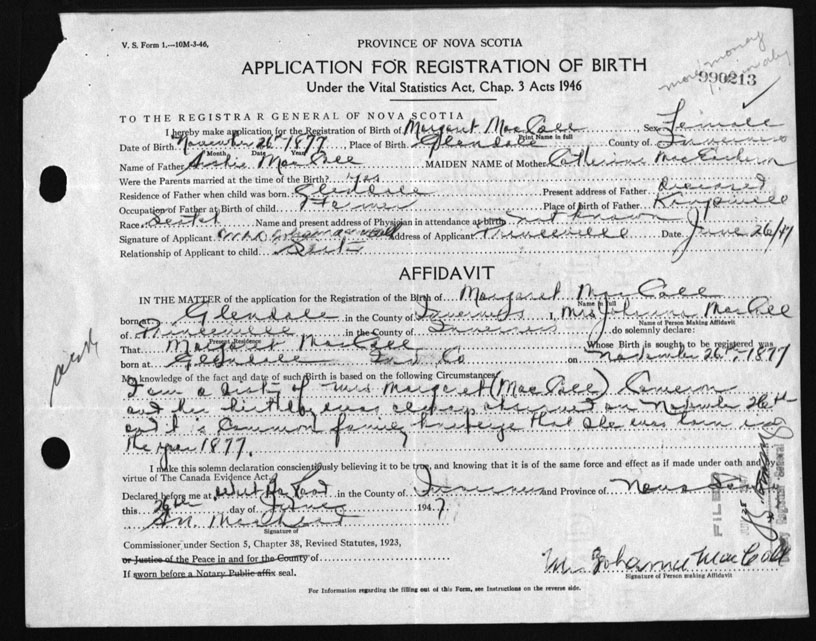 V. S. Form 1.—10M-3-46.
PROVINCE OF NOVA SCOTIA
APPLICATION FOR REGISTRATION OF BIRTH
Under the Vital Statistics Act, Chap. 3 Acts 1946
more money
990213
TO THE REGISTRAR GENERAL OF NOVA SCOTIA
I hereby make application for the Registration of Birth of Margaret MacCall Sex Female
Print Name in full
Date of Birth November 26th 1877 Place of Birth Glendale County of Inverness
Month Date Year
Name of Father Archie MacCall MAIDEN NAME of Mother Catherine MacEachern
Were the Parents married at the time of the Birth? yes
Residence of Father when child was born Glendale Present address of Father Deceased
Occupation of Father at Birth of child Farmer Place of Birth of Father
Race Scotch Name and present address of Physician in attendance at birth not known
Signature of Applicant Mrs Johanna MacCall Address of Applicant Princeville Date June 26/47
Relationship of Applicant to child
AFFIDAVIT
IN THE MATTER of the application for the Registration of the Birth of Margaret MacCall
Name in Full
born at Glendale in the County of Inverness I, Mrs Johanna MacCall
Name of Person Making Affidavit
of Princeville in the County of Inverness do solemnly declare:
Present Residence
That Margaret MacCall Whose Birth is sought to be registered was
born at Glendale Inv. Co on November 26th, 1877
My knowledge of the fact and date of such Birth is based on the following Circumstances
I am a of Mrs Margaret (MacCall) Cameron
and her birthday was always observed on November 26th
and it is Common family knowledge that she was born in
the year 1877.
I make this solemn declaration conscientiously believing it to be true, and knowing that it is of the same force and effect as if made under oath and by
virtue of The Canada Evidence Act.
Declared before me at West Bay Road in the County of Inverness and Province of Nova Scotia
this 26th day of June 1947
Signature of
Commissioner under Section 5, Chapter 38, Revised Statutes, 1923,
or Justice of the Peace in and for the County of
If sworn before a Notary Public affix seal.
FILED
Mrs Johanna MacCall
Signature of Person making Affidavit
For Information regarding the filling out of this Form, see Instructions on the reverse side.